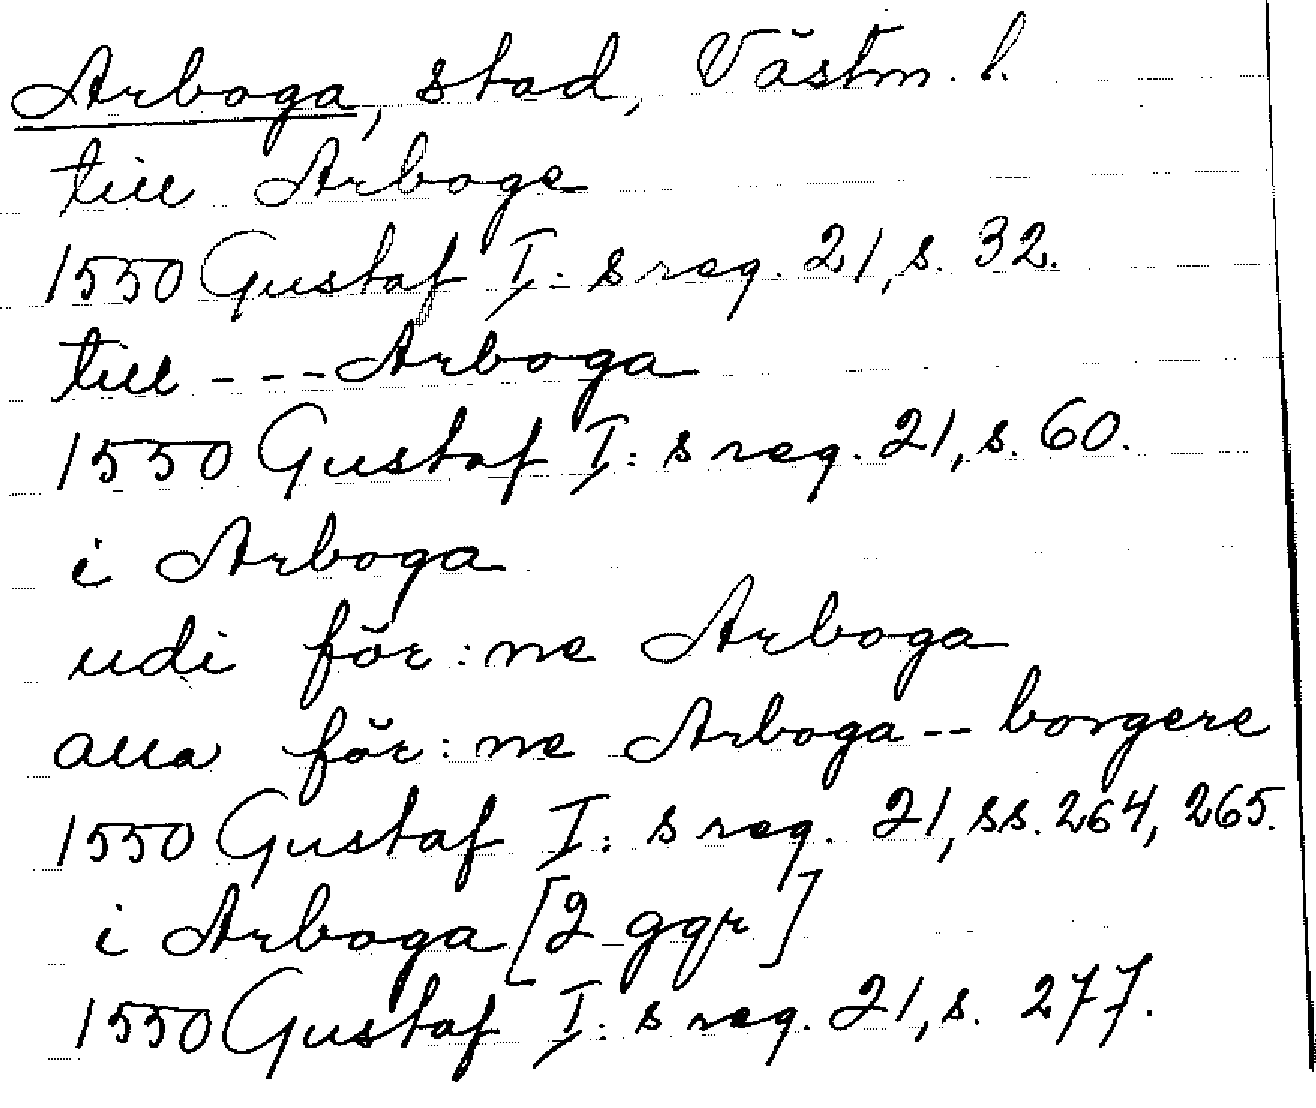 Arboga, stad, Västm. l.
till Arboge
1550 Gustaf I:s reg. 21, s. 32.
till --- Arboga
1550 Gustaf I:s reg. 21, s. 60.
i Arboga
udi för:ne Arboga
alla för:ne Arboga -- borgere
1550 Gustaf I:s reg. 21, ss. 264, 265.
i Arboga [2 ggr]
1550 Gustaf I:s reg. 21, s. 277.